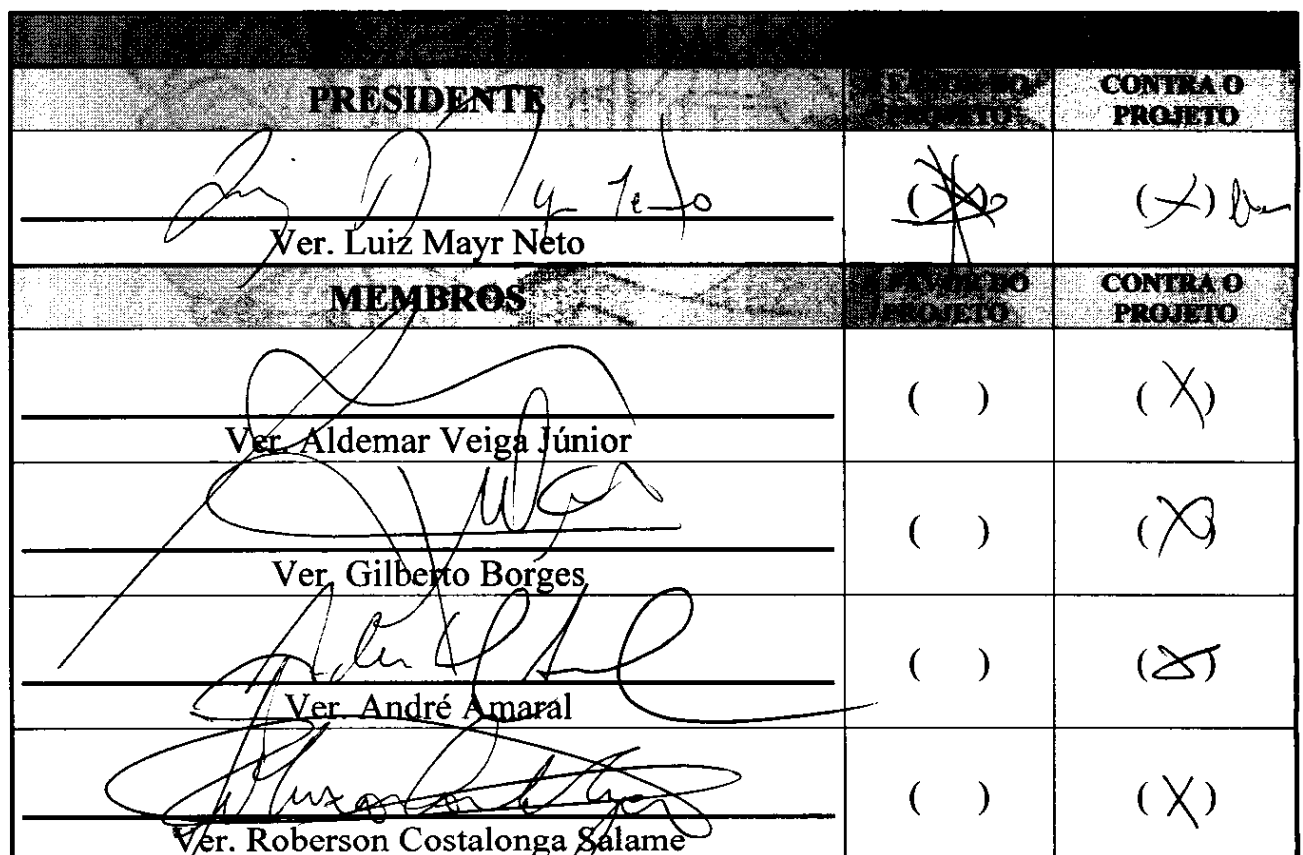 PRESIDENTE
A FAVOR DO PROJETO
CONTRA O PROJETO
( )
(X)
Ver. Luiz Mayr Neto
MEMBROS
A FAVOR DO PROJETO
CONTRA O PROJETO
( ) (X)
Ver. Aldemar Veiga Júnior
( ) (X)
Ver. Gilberto Borges
( ) (X)
Ver. André Amaral
( ) (X)
Ver. Roberson Costalonga Salame